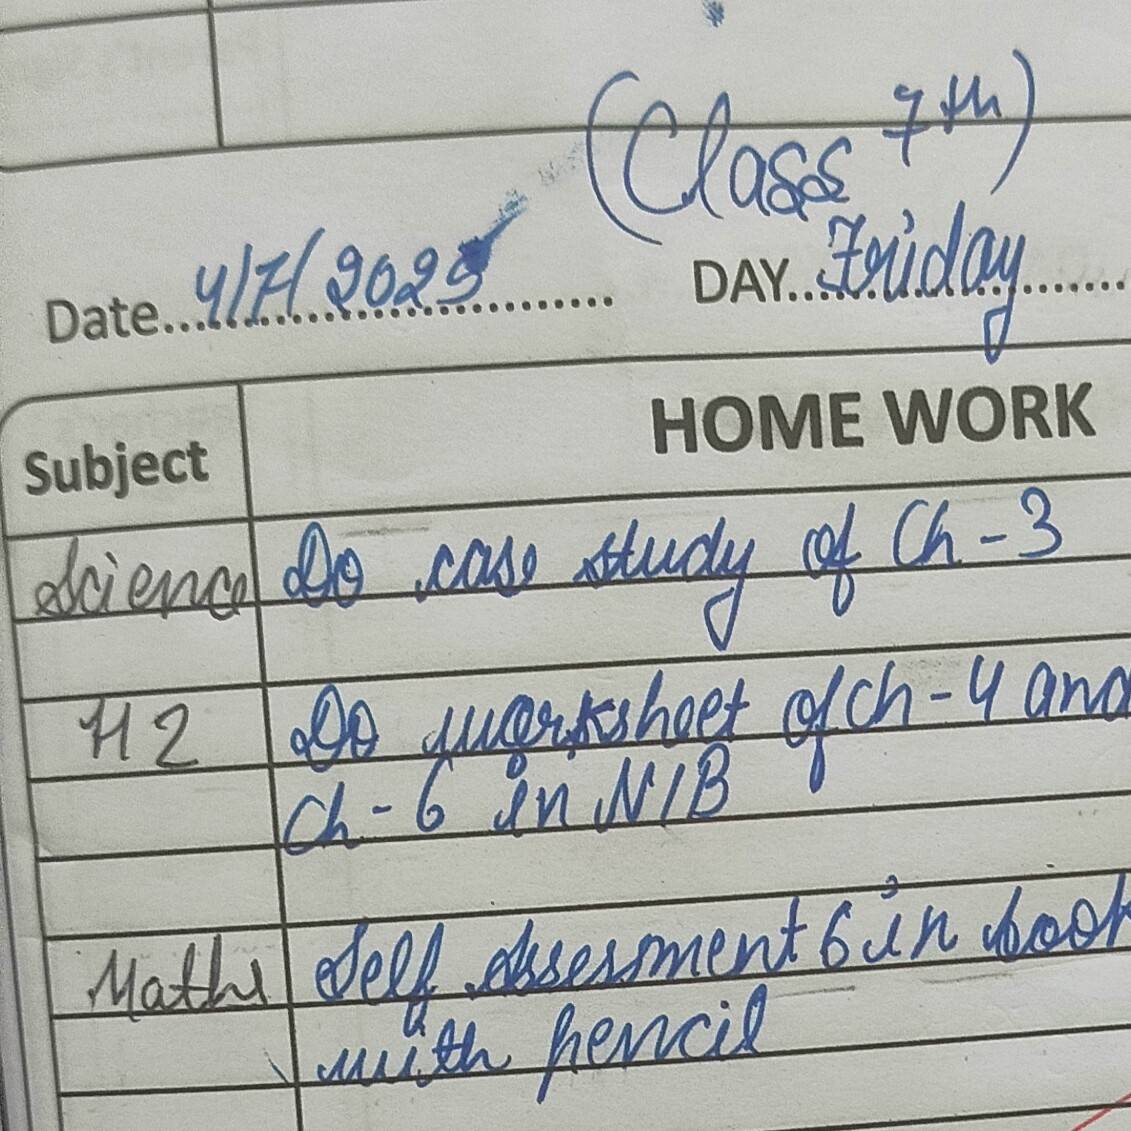 (Class 7th)
Date 4/7/2025 DAY Friday
Subject HOME WORK
Science Do case study of Ch-3
H2 Do worksheet of ch-4 and
Ch-6 in N/B
Maths Self Assessment 6 in book
with pencil